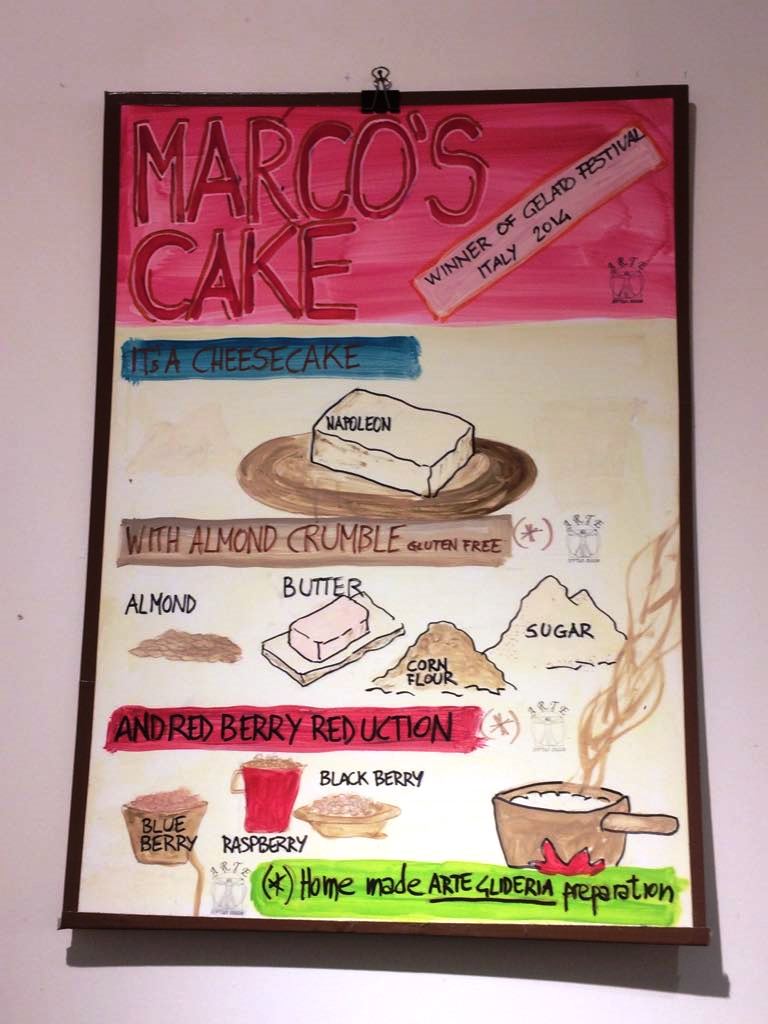 MARCO'S
CAKE
WINNER OF GELATO FESTIVAL
ITALY 2014
ARTE
IT'S A CHEESECAKE
NAPOLEON
WITH ALMOND CRUMBLE GLUTEN FREE (*)
ARTE
ALMOND
BUTTER
CORN
FLOUR
SUGAR
AND RED BERRY REDUCTION (*)
ARTE
BLUE
BERRY
RASPBERRY
BLACK BERRY
ARTE
(*) Home made ARTE GLIDERIA preparation